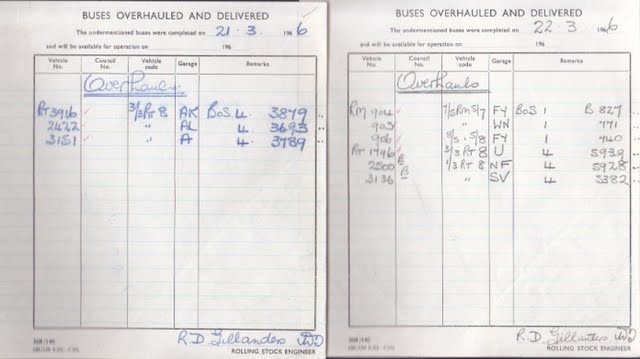 BUSES OVERHAULED AND DELIVERED
The undermentioned buses were completed on 21.3. 1966
and will be available for operation on 196
Vehicle No. Council No. Vehicle code Garage Remarks
Overhauls
RT3916 3/3RT8 AK BoS 4. 3879
2422 " AL 4. 3693
3151 " A 4. 3789
R.D. Gillanders
ROLLING STOCK ENGINEER
BUSES OVERHAULED AND DELIVERED
The undermentioned buses were completed on 22.3 1966
and will be available for operation on 196
Vehicle No. Council No. Vehicle code Garage Remarks
Overhauls
RM 904 7/5RM5/7 FY BoS 1 B 827
905 " WN 1 771
906 5/5 . 5/8 FY 1 740
RT 1796 3/3 RT 8 U 4 5939
2500 B 1/3 RT 8 NF 4 5928
3136 B " SV 4 5382
R.D. Gillanders
ROLLING STOCK ENGINEER